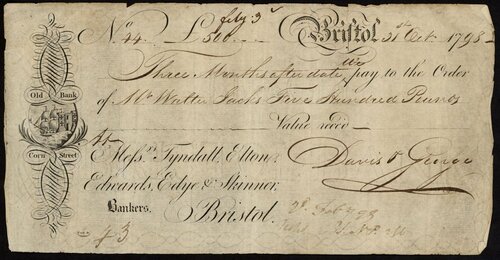 feby 3
No. 44. £ 500. Bristol 31st Oct. 1798
Three Months after date pay to the Order
of Mr. Walter Jacks Five Hundred Pounds
Value recd
Old Bank
Corn Street
To
Messrs. Tyndall, Elton,
Edwards, Edye & Skinner,
Bankers. Bristol.
Davis & George